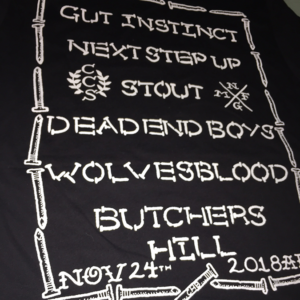 GUT INSTINCT
NEXT STEP UP
CCS STOUT
DEADEND BOYS
WOLVESBLOOD
BUTCHERS
HILL
NOV 24TH 2018